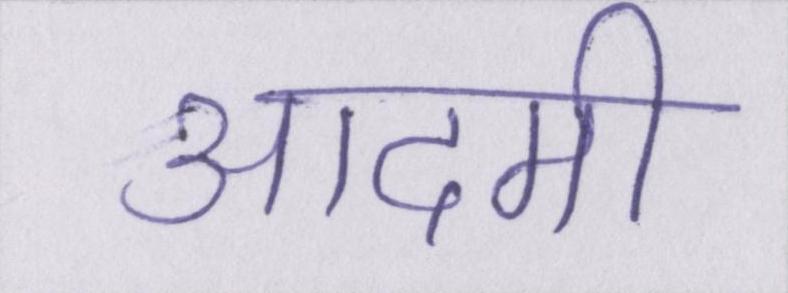 आदमी